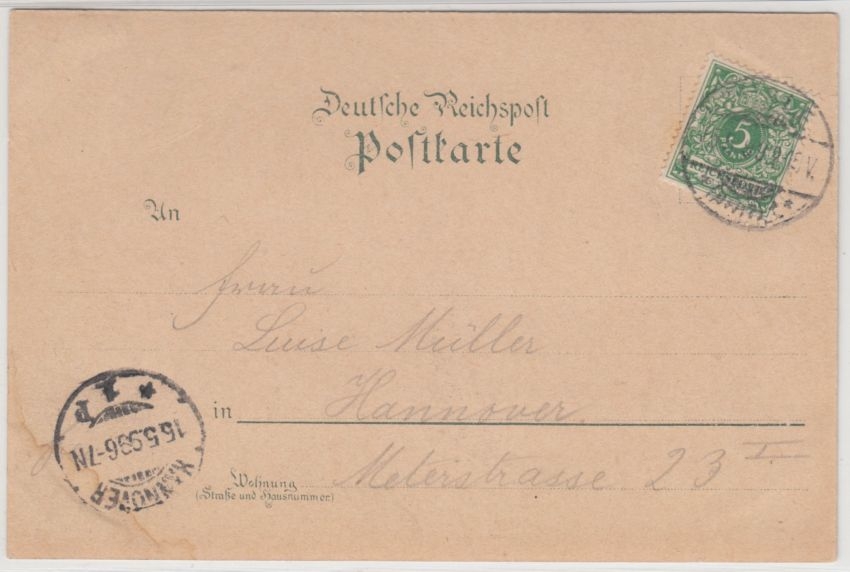 Deutsche Reichspost
Postkarte
5
PFENNIG
REICHSPOST
V.
An
Frau
Luise Müller
in Hannover.
Meterstrasse 23 I
Wohnung
(Straße und Hausnummer)
HANNOVER
15.5.99 6-7N
* 1 P